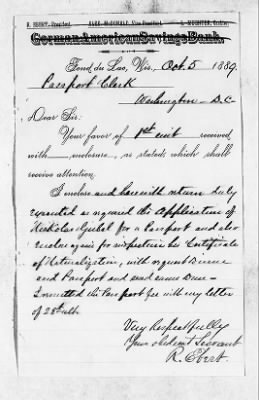 R. EBERT, President. ALEX. McDONALD, Vice President.
German American Savings Bank,
Fond du Lac, Wis., Oct 5 1889
Passport Clerk
Washington - D.C.
Dear Sir:
Your favor of 1st inst received,
with enclosure, as stated, which shall
receive attention.
I enclose and herewith return duly
executed as required the Application of
Nicholas Giebel for a Passport and also
enclose again for inspection his Certificate
of Naturalization, with request
and Passport and send same
I remitted the Passport fee with my letter
of 28th ulto
Very Respectfully
Your obedient Servant
R. Ebert.